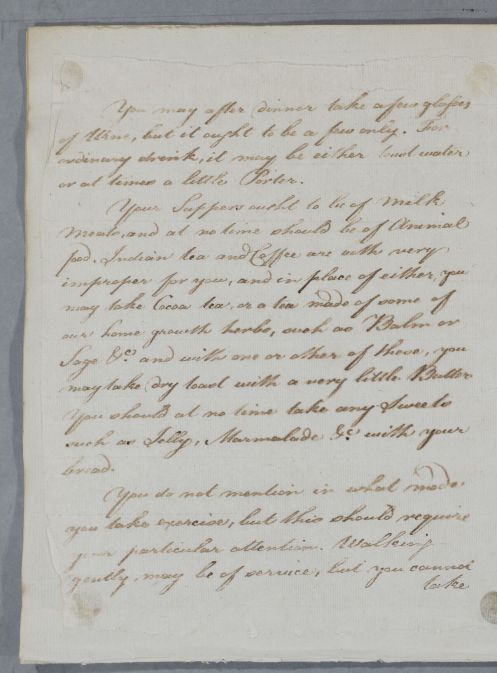 You may after dinner take a few glasses
of Wine, but it ought to be a few only. For
ordinary drink, it may be either toast water
or at times a little Porter.
Your Suppers ought to be of Milk
Meats, and at no time should be of Animal
food. Indian tea and Coffee are both very
improper for you, and in place of either, you
may take Cocoa tea, or a tea made of some of
our home growth herbs, such as Balm or
Sage &c. and with one or other of these, you
may take dry toast with a very little Butter
You should at no time take any Sweets
such as Jelly, Marmalade &c. with your
bread.
You do not mention in what mode
you take exercise, but this should require
your particular attention. Walking
gently, may be of service, but you cannot
take